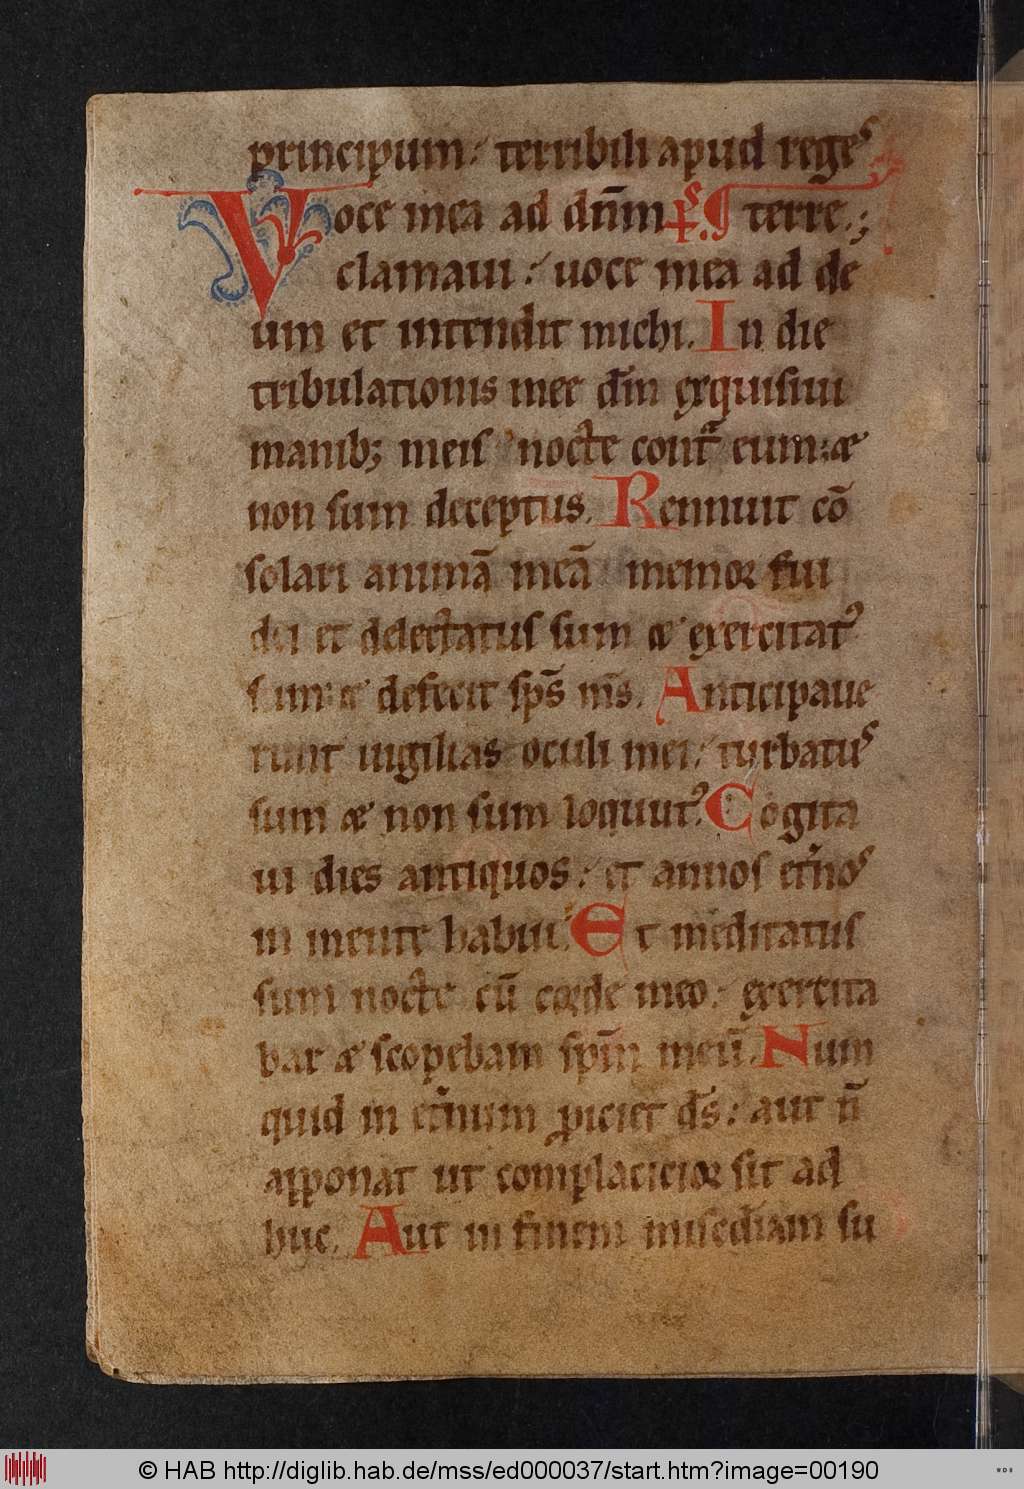 principum: terribili apud reges
Voce mea ad dn̄m p̄s. ¶ terre.;
clamaui: uoce mea ad de
um et intendit michi. In die
tribulationis mee dm̄ exquisiui
manib; meis nocte cont̄ eum: &
non sum deceptus. Rennuit cō
solari animā meā memor fui
dei et delectatus sum & exercitatꝰ
sum & defecit sps̄ ms̄. Anticipaue
runt uigilias oculi mei: turbatus
sum & non sum loquutꝰ. Cogita
ui dies antiquos: et annos et̄nos
in mente habui. Et meditatus
sum nocte cū corde meo: exercita
bar & scopebam spm̄ meū. Num
quid in et̄num ꝓiciet ds̄: aut n̄
apponat ut complacicior sit ad
huc. Aut in finem misediam su
© HAB http://diglib.hab.de/mss/ed000037/start.htm?image=00190